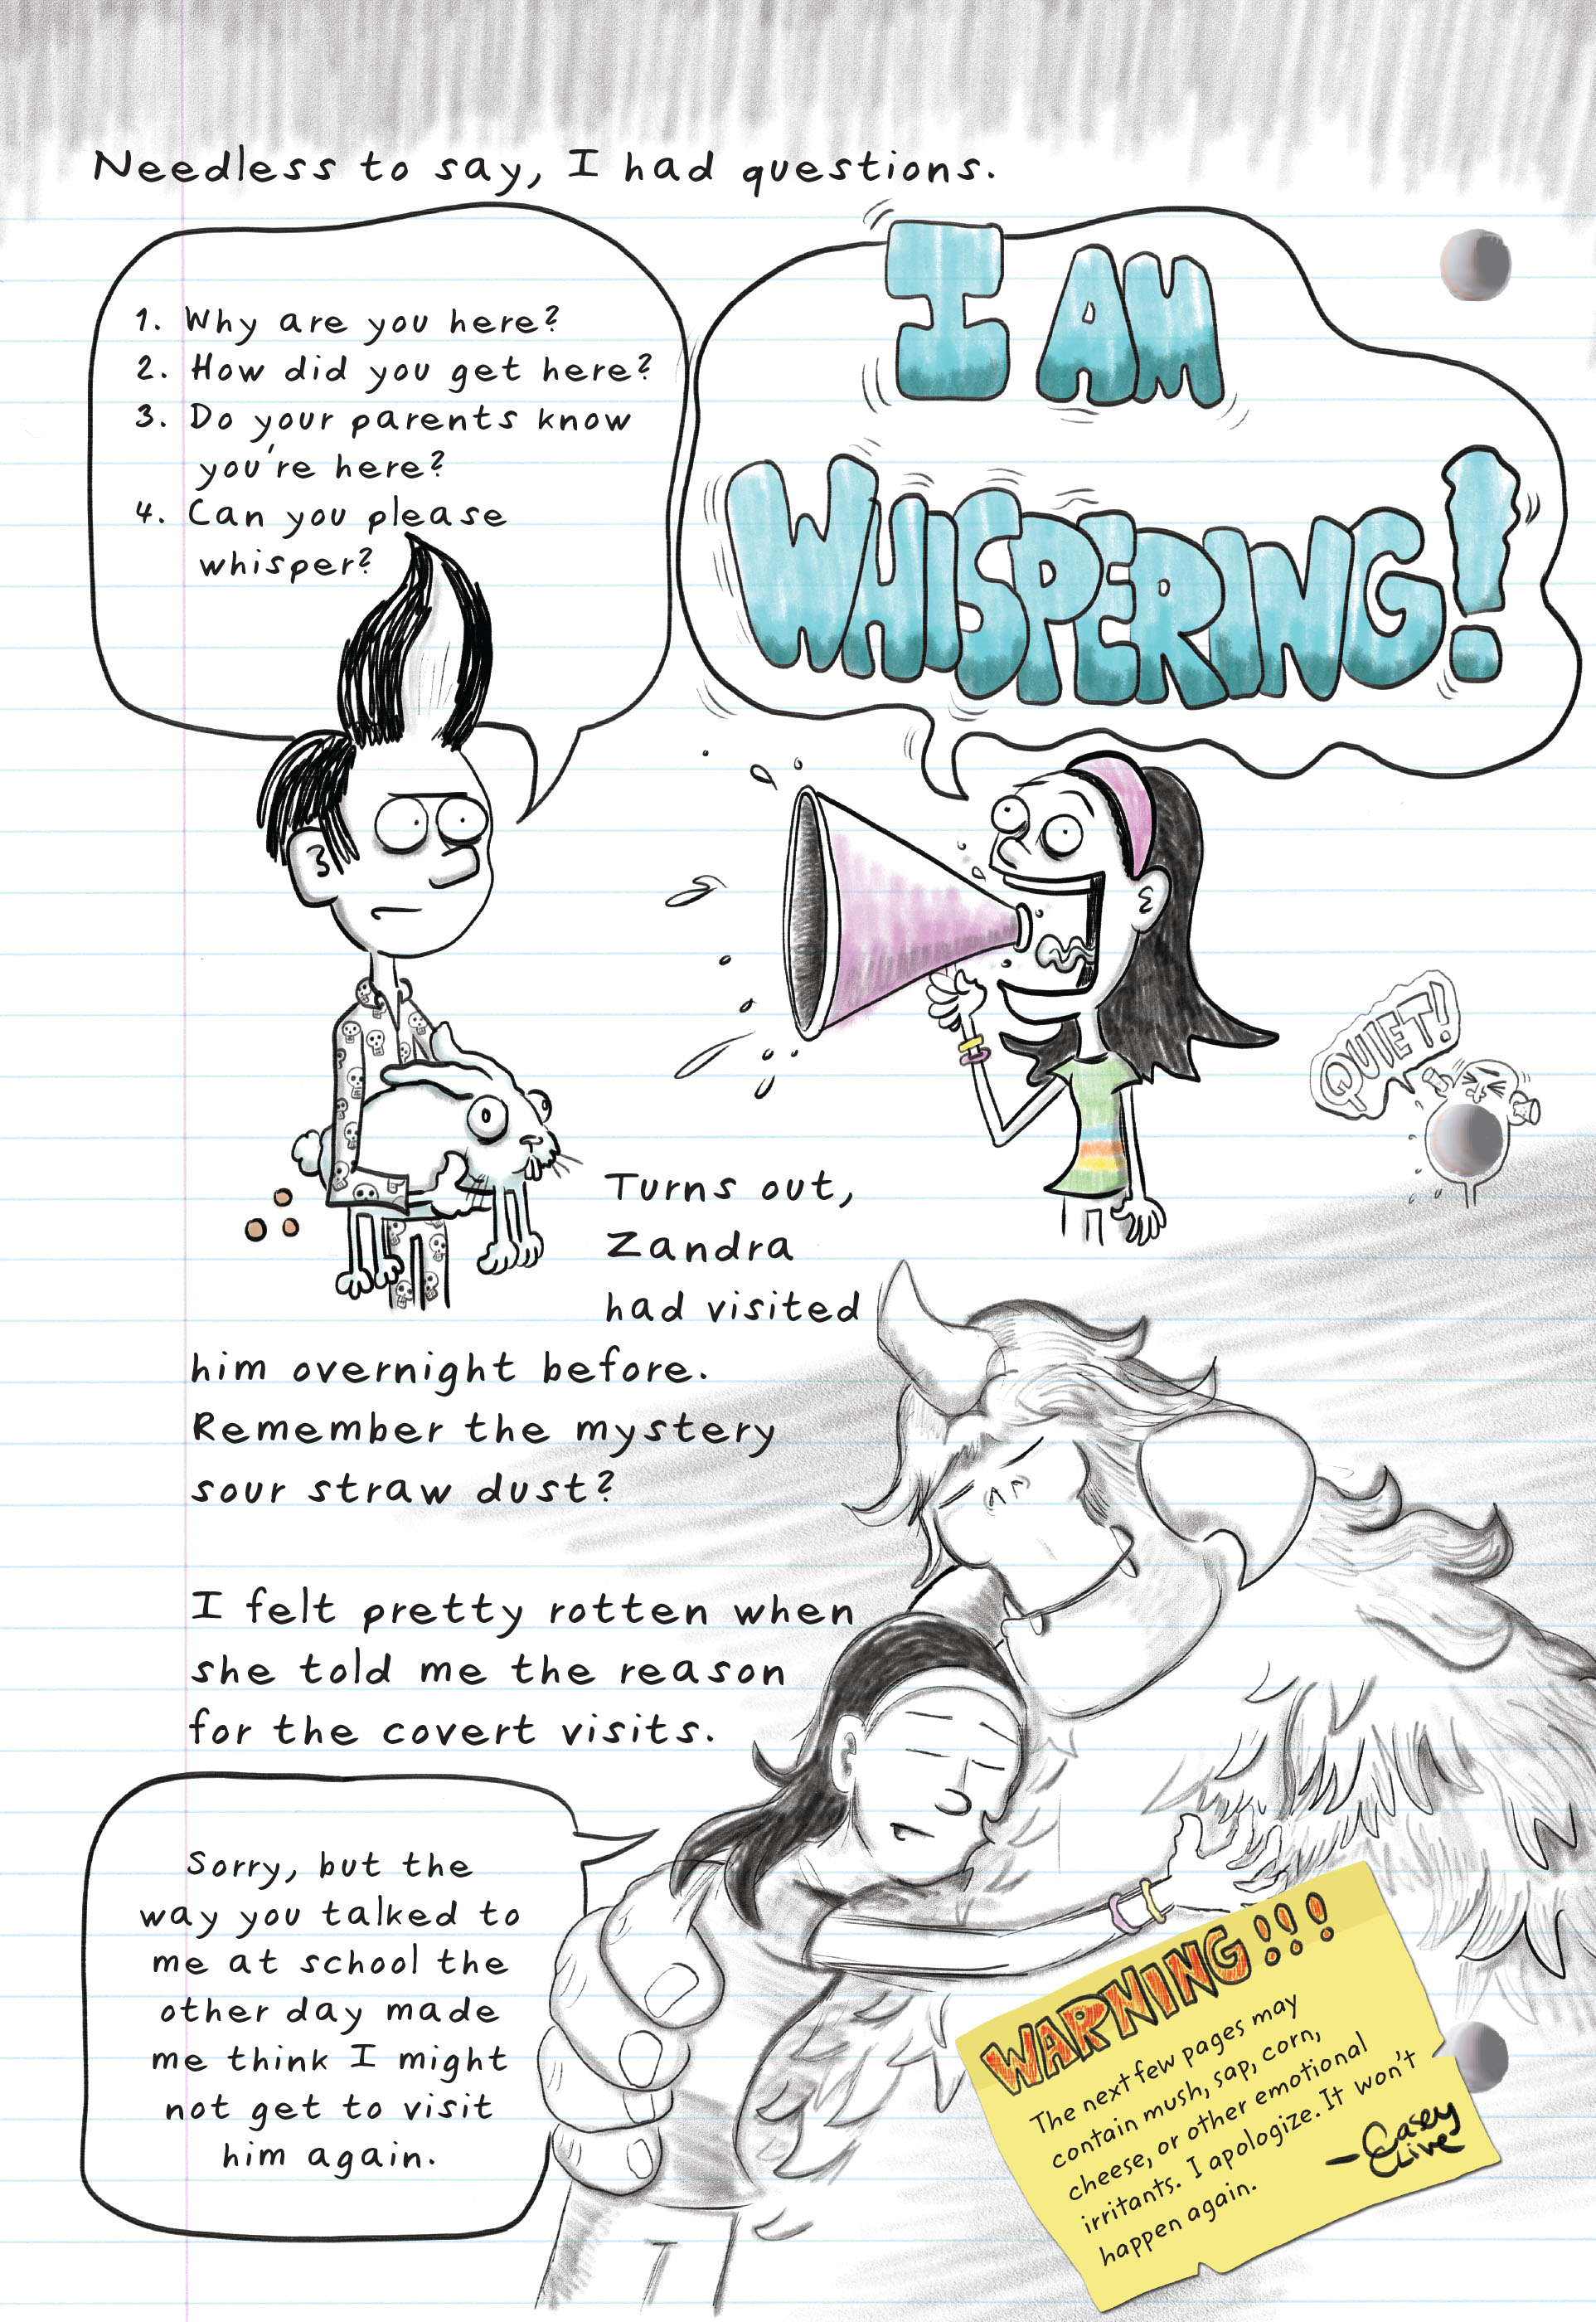 Needless to say, I had questions.
1. Why are you here?
2. How did you get here?
3. Do your parents know
you're here?
4. Can you please
whisper?
I AM
WHISPERING!
QUIET!
Turns out,
Zandra
had visited
him overnight before.
Remember the mystery
sour straw dust?
I felt pretty rotten when
she told me the reason
for the covert visits.
Sorry, but the
way you talked to
me at school the
other day made
me think I might
not get to visit
him again.
WARNING!!!
The next few pages may
contain mush, sap, corn,
cheese, or other emotional
irritants. I apologize. It won't
happen again.
—Casey
Clive